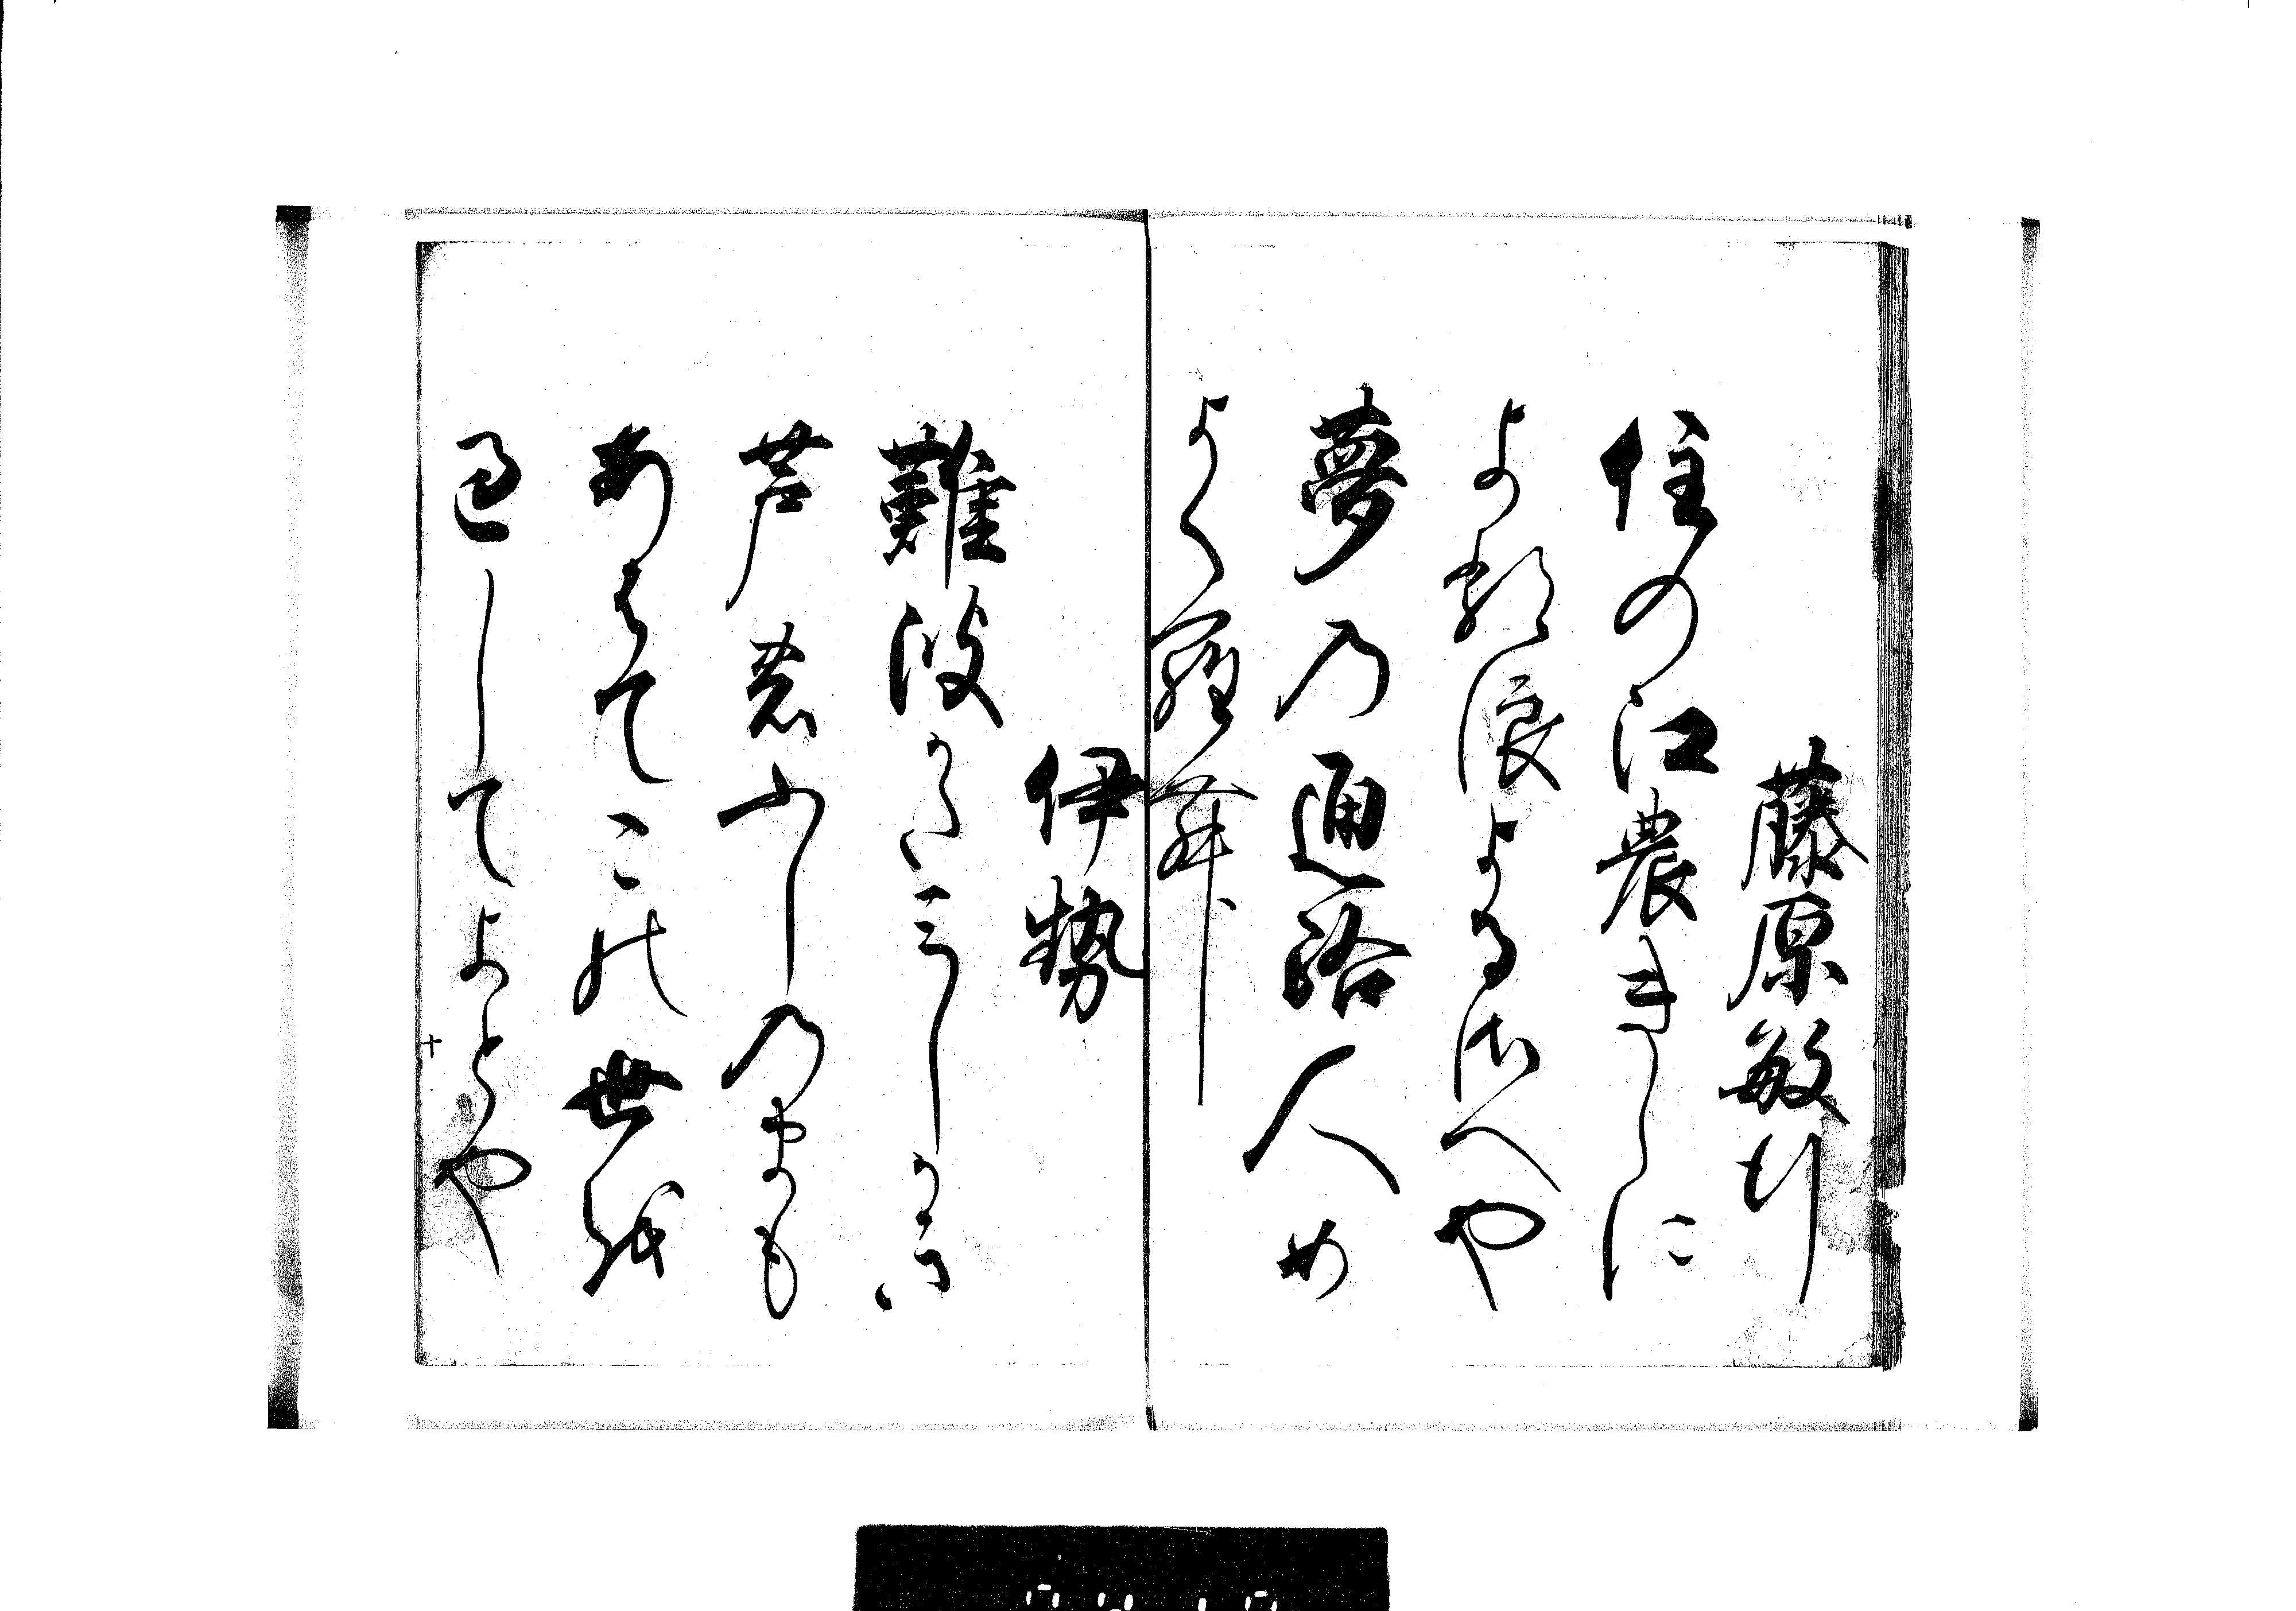 藤原敏行
住の江農きしに
よ類浪よるさへや
夢乃通路人め
よく羅舞
伊勢
難波かたみしかき
芦農ふしのまも
あはてこの世越
過してよとや